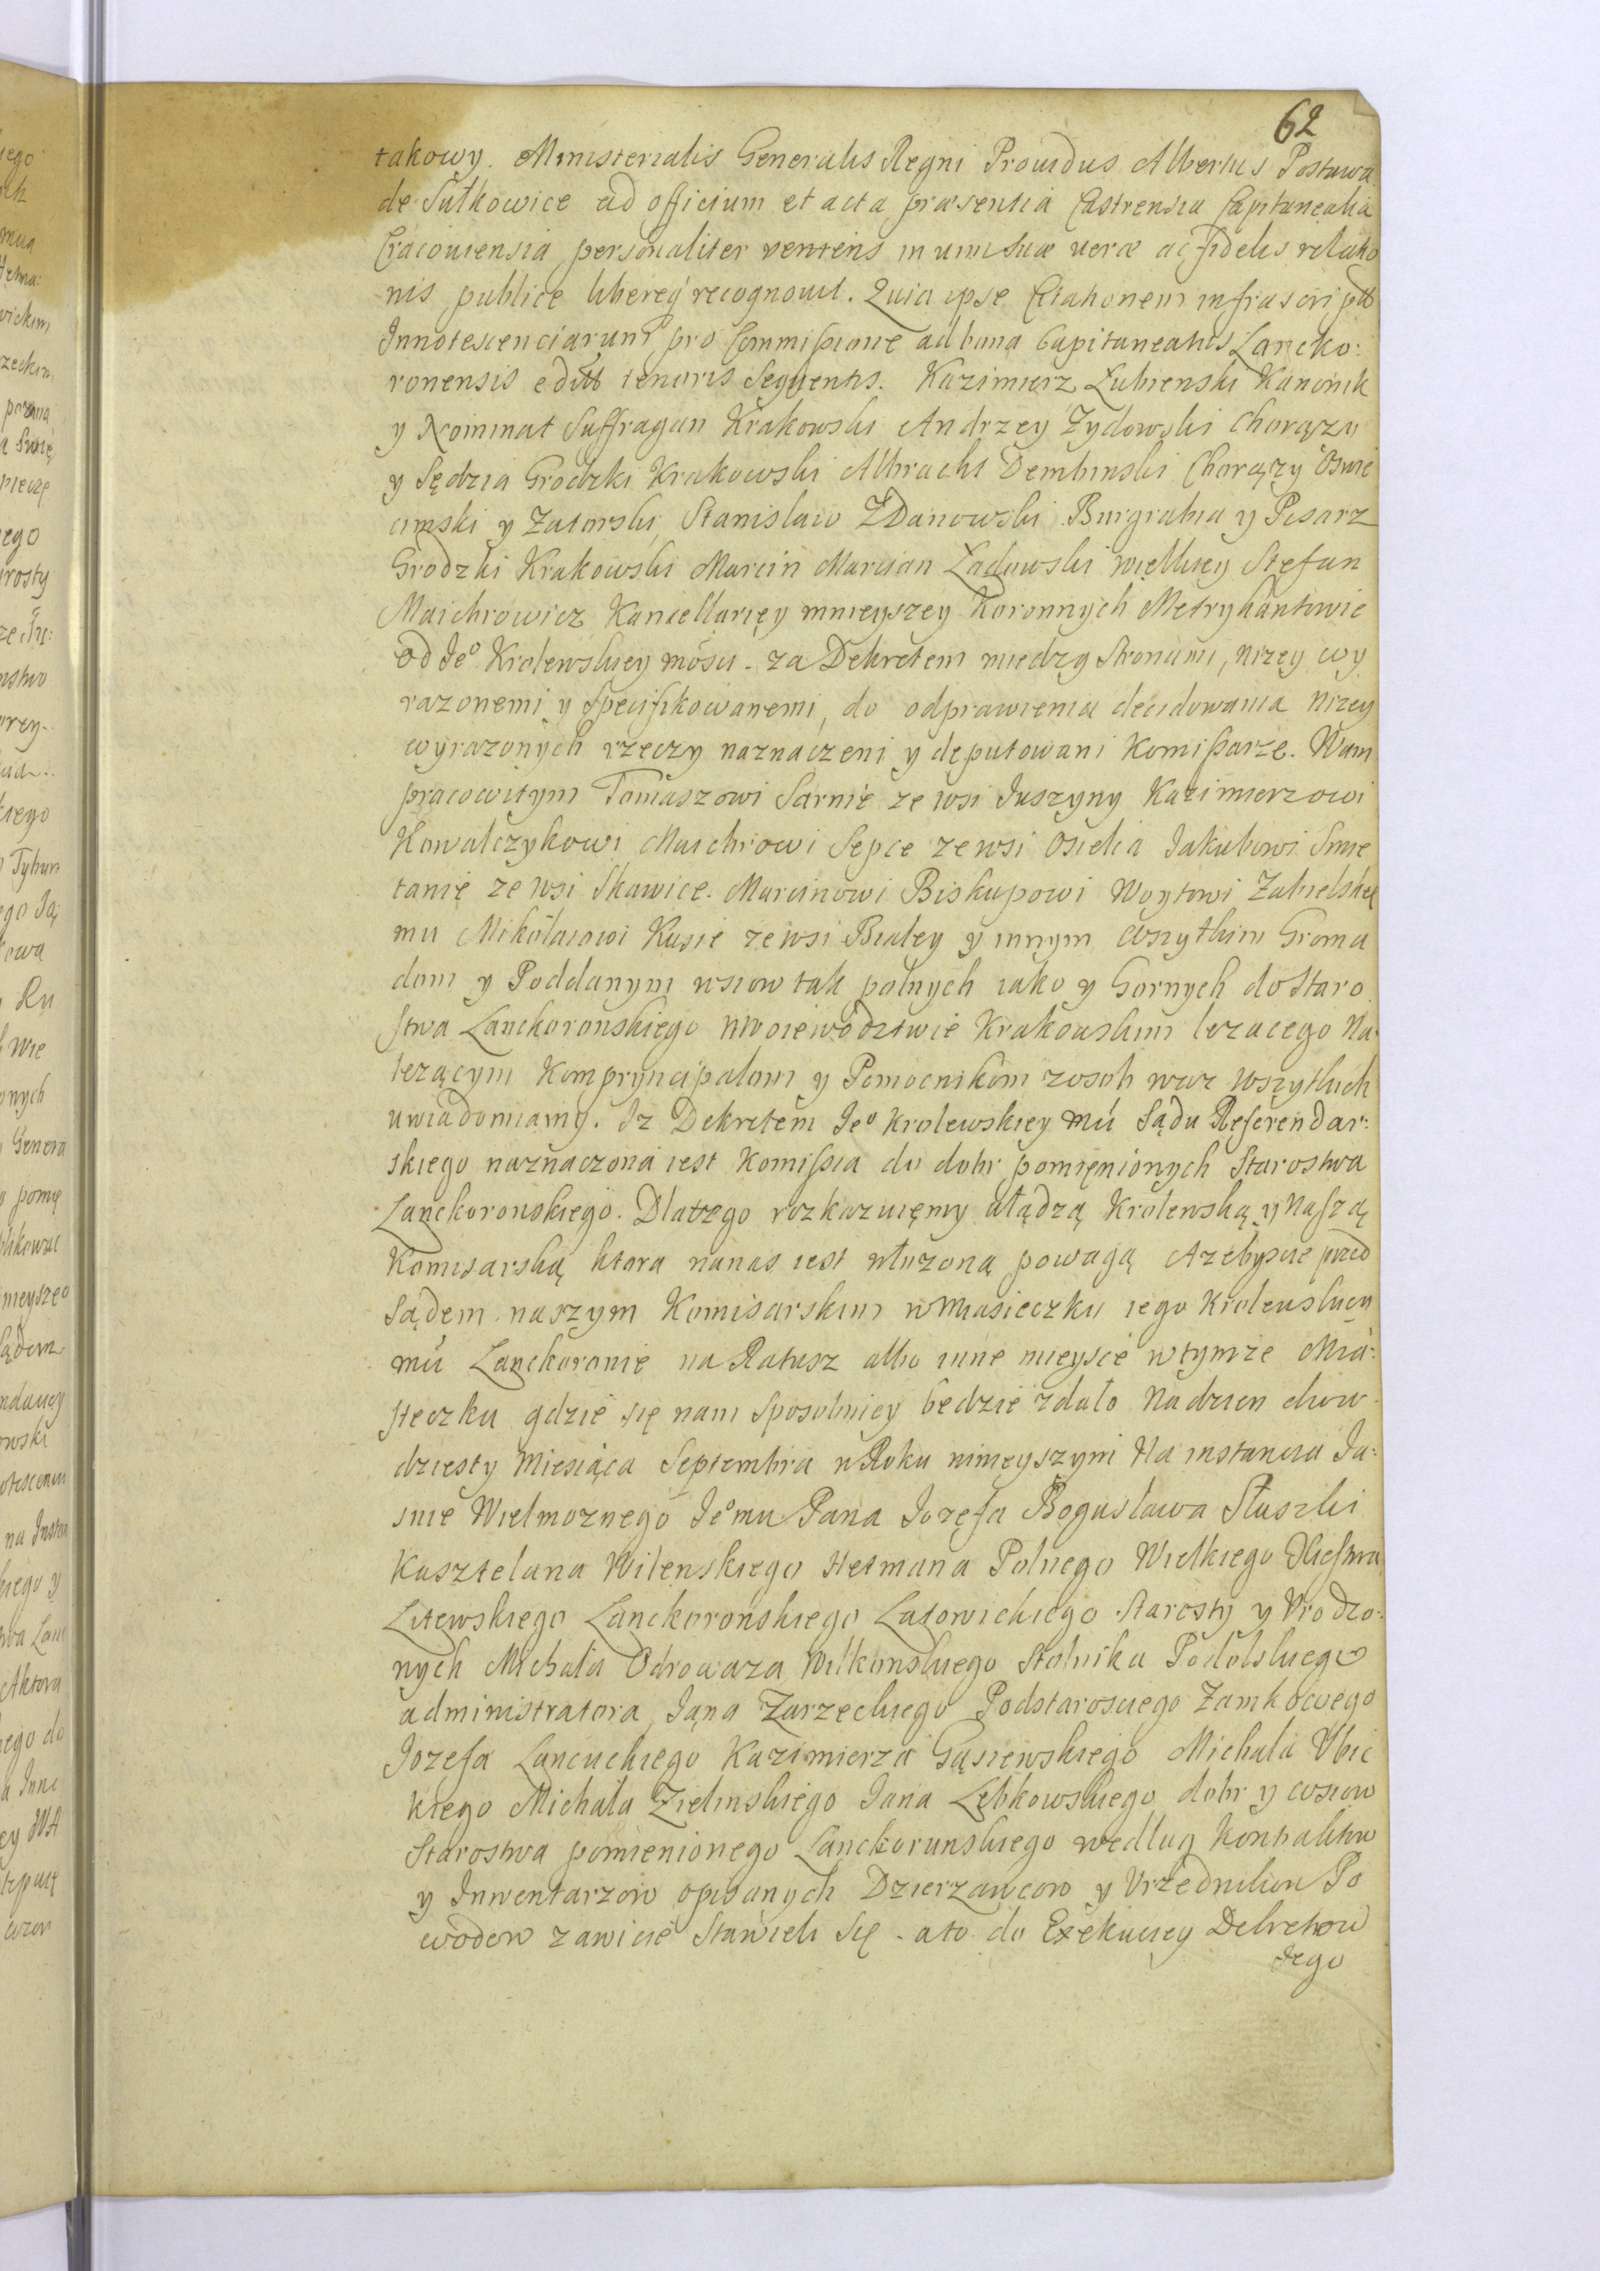 62
takowy. Ministerialis Generalis Regni Prouidus Albertus Postawa
de Sułkowice ad officium et acta præsentia Castrensia Capitanealia
Cracouiensia personaliter veniens in uim suæ ueræ ac fidelis relatio
nis publice libereq́ recognouit. Quia ipse Citationem infrascriptt
Innotescenciarum pro Commissione ad bona Capitaneatus Lancko:
ronensis editt tenoris sequentis. Kazimierz Łubienski Kanonik
y Nominat Suffragan Krakowski Andrzey Zydowski Chorązy
y Sędzia Grodzki Krakowski Albracht Dembinski Chorązy Oswie
cimski y Zatorski, Stanislaw Zdanowski Burgrabia y Pisarz
Grodzki Krakowski Marcin Marcian Ladowski większey Stefan
Maichrowicz Kancellaryey mnieyszey Koronnych Metrykantowie
od Jeo Krolewskiey mósci. za Dekretem miedzy Stronami, nizey wy
razonemi y specifikowanemi, do odprawienia decidowania nizey
wyrazonych rzeczy naznaczeni y deputowani Komissarze. Wam
pracowitym Tomaszowi Sarnie ze wsi Juszyny Kazimierzowi
Kowalczykowi Maichrowi Sepce ze wsi Osielca Jakubowi Smie
tanie ze wsi Skawice. Marcinowi Biskupowi Woytowi Zabielske
mu Mikołaiowi Kusie ze wsi Bialey y innym wszytkim Groma
dom y Poddanym wsiow tak polnych iako y Gornych do Staro
stwa Lanckoronskiego w Woiewodztwie Krakowskim lezacego Na
lezącym Kompryncipalom y Pomocnikom zosob waz wszytkich
uwiadomiamy. Iz Dekretem Jeo Krolewskiey mći Sądu Referendar:
skiego naznaczona iest Komissia do dobr pomięnionych Starostwa
Lanckoronskiego. Dlatego rozkazuięmy władzą Krolewską y Naszą
Komisarską ktora nanas iest włozoną powagą Azebyscie przed
Sądem naszym Komisarskim w Miasteczku iego Krolewskiey
mći Lanckoronie na Ratusz albo inne mieysce w tymze Mia:
steczku gdzie się nam sposobniey bedzie zdało Na dzien dwu
dziesty Miesiąca Septembra w Roku ninieyszym Na instancia Ja:
snie Wielmoznego Jeo mći Pana Iozefa Bogusława Słuszki
Kasztelana Wilenskiego Hetmana Polnego Wielkiego Xięstwa
Litewskiego Lanckoronskiego Latowickiego Starosty y Vrodzo:
nych Michała Odrowaza Wilkonskiego Stolnika Podolskiego
administratora, Jana Zarzeckiego Podstarosciego Zamkowego
Jozefa Lancuckiego Kazimierza Gąsiewskiego Michała Vbic
kiego Michała Zielinskiego Jana Lębkowskiego dobr y wsiow
Starostwa pomienionego Lanckorunskiego według Kontraktow
y Inwentarzow opisanych Dzierzawcow y Vrzednikow Po
wodow zawicie Stawieli się. ato do Exekucyey Dekretow
Jego